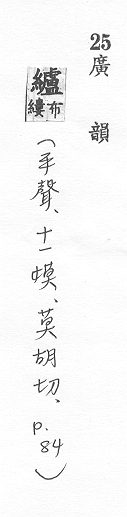 25廣韻
纑布縷(平聲、十一模、莫胡切、p.84)